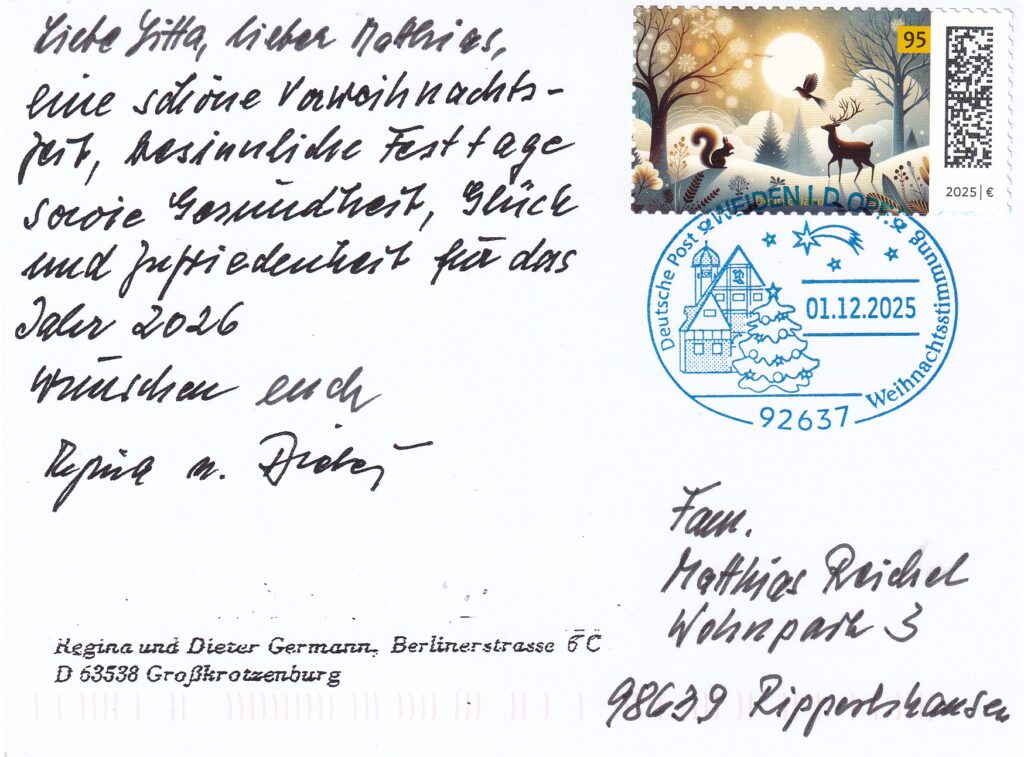 Liebe Jitta, lieber Matthias,
eine schöne Vorweihnachts-
zeit, besinnliche Festtage
sowie Gesundheit, Glück
und Zufriedenheit für das
Jahr 2026
wünschen euch
Regina u. Dieter
Regina und Dieter Germann, Berlinerstrasse 6 C
D 63538 Großkrotzenburg
95
2025 | €
Deutschland
WEIDEN I.D.OPF.
Deutsche Post
Weihnachtsstimmung
01.12.2025
92637
Fam.
Matthias Reichel
Wohnpark 3
98639 Rippershausen